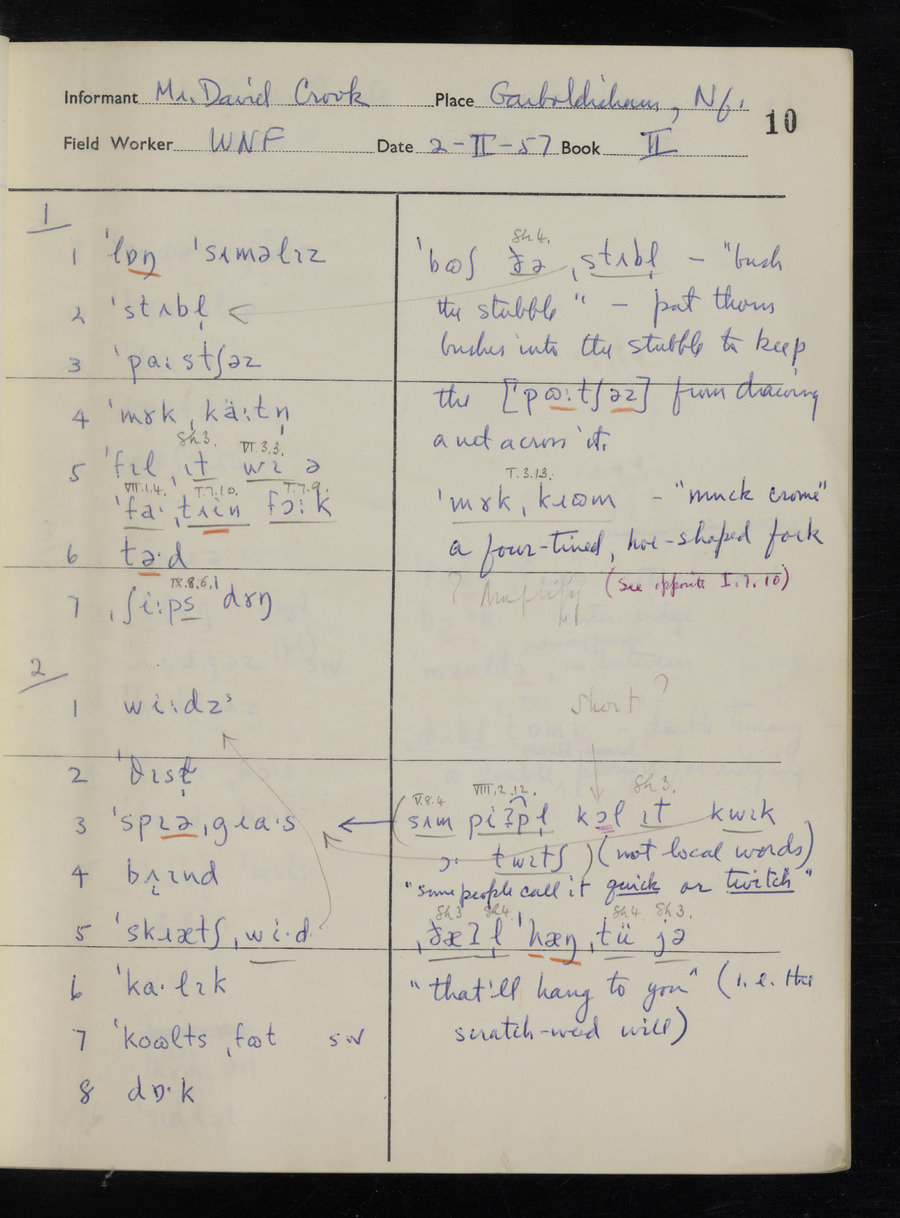 Informant Mr. David Crook Place Garboldisham, Nf. 10
Field Worker WNF Date 2-II-57 Book II
1
1 ˈlɒŋ ˈsɪməlɪz
2 ˈstʌbl̩
3 ˈpaːstʃəz
4 ˈmɤk ˌkäːtn̩
Sh 3. VI.3.3.
5 ˈfɪl ˌɪt wɪ ə
VII.1.4. I.7.10. I.7.9.
ˈfaˑ ˌtɹɪn fɔːk
6 təˑd
IX.8.6,1
7 ˌʃiːps dɤŋ
2
1 wiːdz
2 ˈθɪsl̩
3 ˈspɪə ˌgɹaˑs
4 bɹɪnd
5 ˈskɹætʃ ˌwiˑd
6 ˈkaˑlɪk
7 ˈkoʊlts ˌfʊt sw
8 dɒˑk
Sh 4.
ˈbʊʃ ðə ˌstʌbl̩ – "bush
the stubble" – put thorn
bushes into the stubble to keep
the [ˈpʊːtʃəz] from drawing
a net across it.
I.3.13.
ˈmɤk ˌkɹʊm – "muck crome"
a four-tined, hoe-shaped fork
? Amplify (see opposite I.7.10)
short?
V.8.4 VIII.2.12. Sh 3.
(sʌm piːʔpl̩ kɔl ɪt kwɪk
ɔˑ twɪtʃ) (not local words)
"some people call it quick or twitch"
Sh 3 Sh 4 Sh 4 Sh 3.
ˌðæʔl̩ ˈhæŋ ˌtü jə
"that'll hang to you" (i.e. the
scratch-weed will)